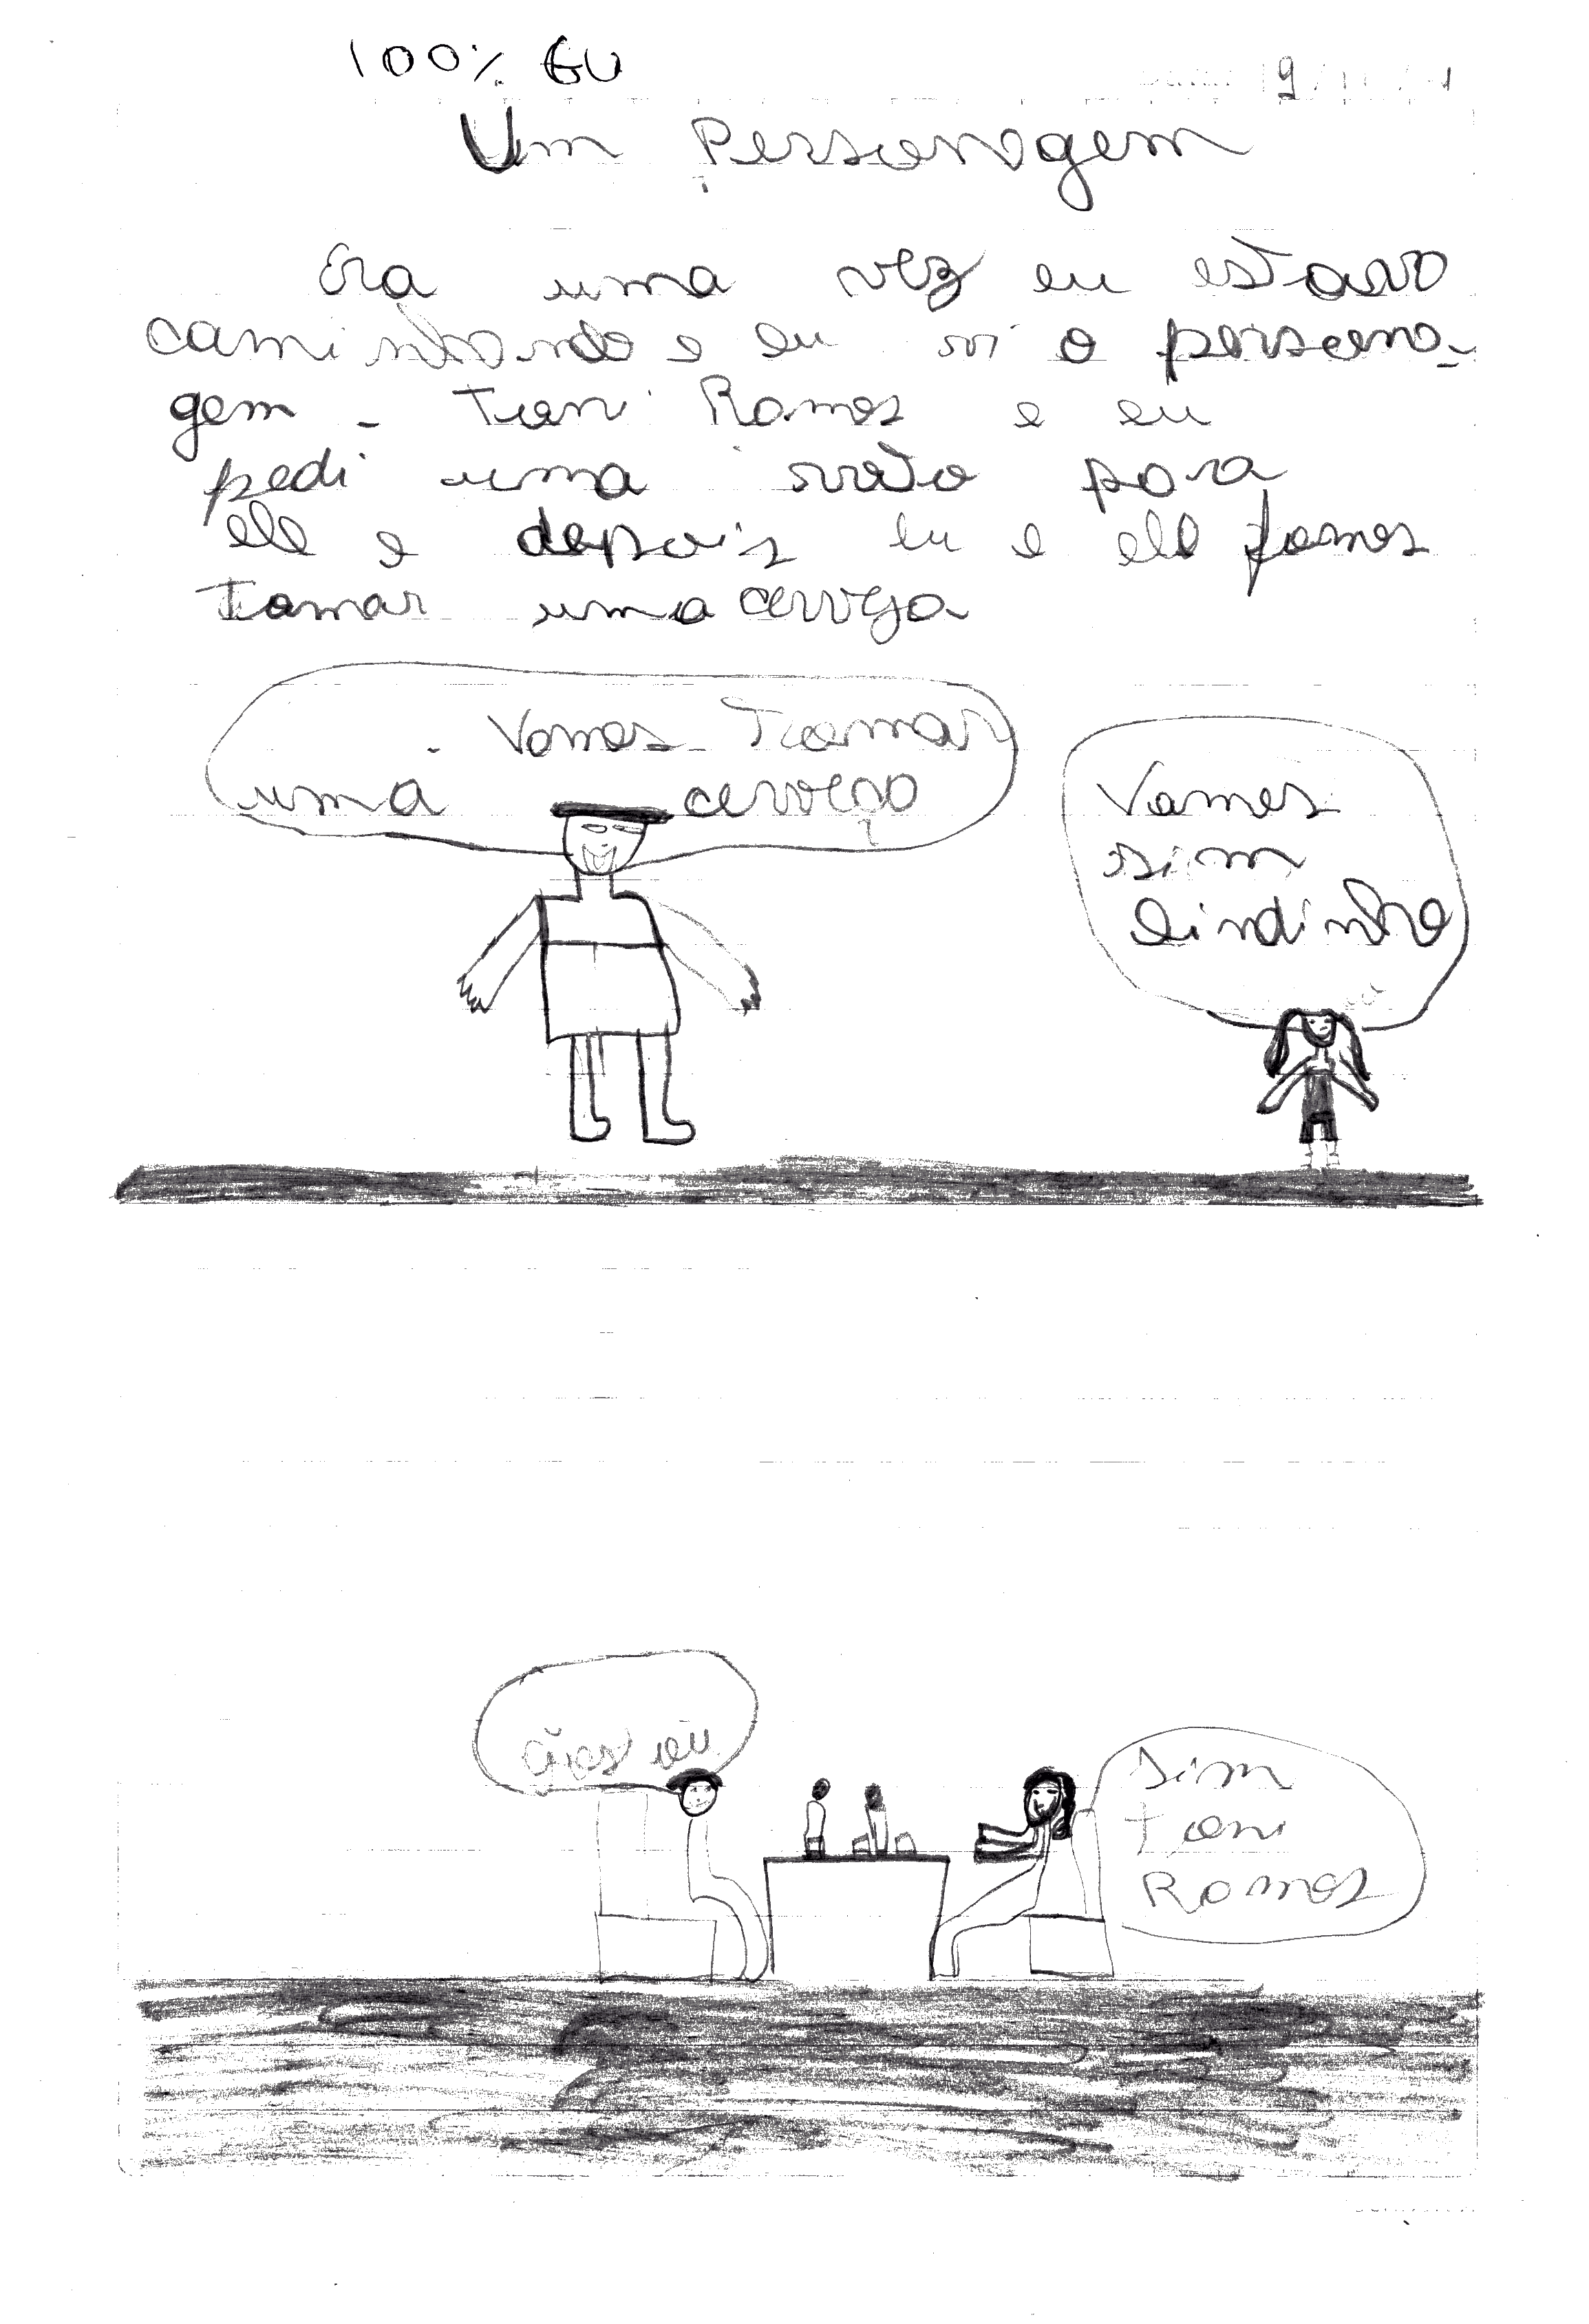 100% EU
Um Personagem
Era uma vez eu estava
caminhando e eu vi o persona-
gem - Toni Ramos e eu
pedi uma para
ele e depois eu e ele fomos
Tomar uma cerveja
Vamos Tomar
uma cerveja
?
Vamos
sim
lindinho
Sim
toni
Ramos